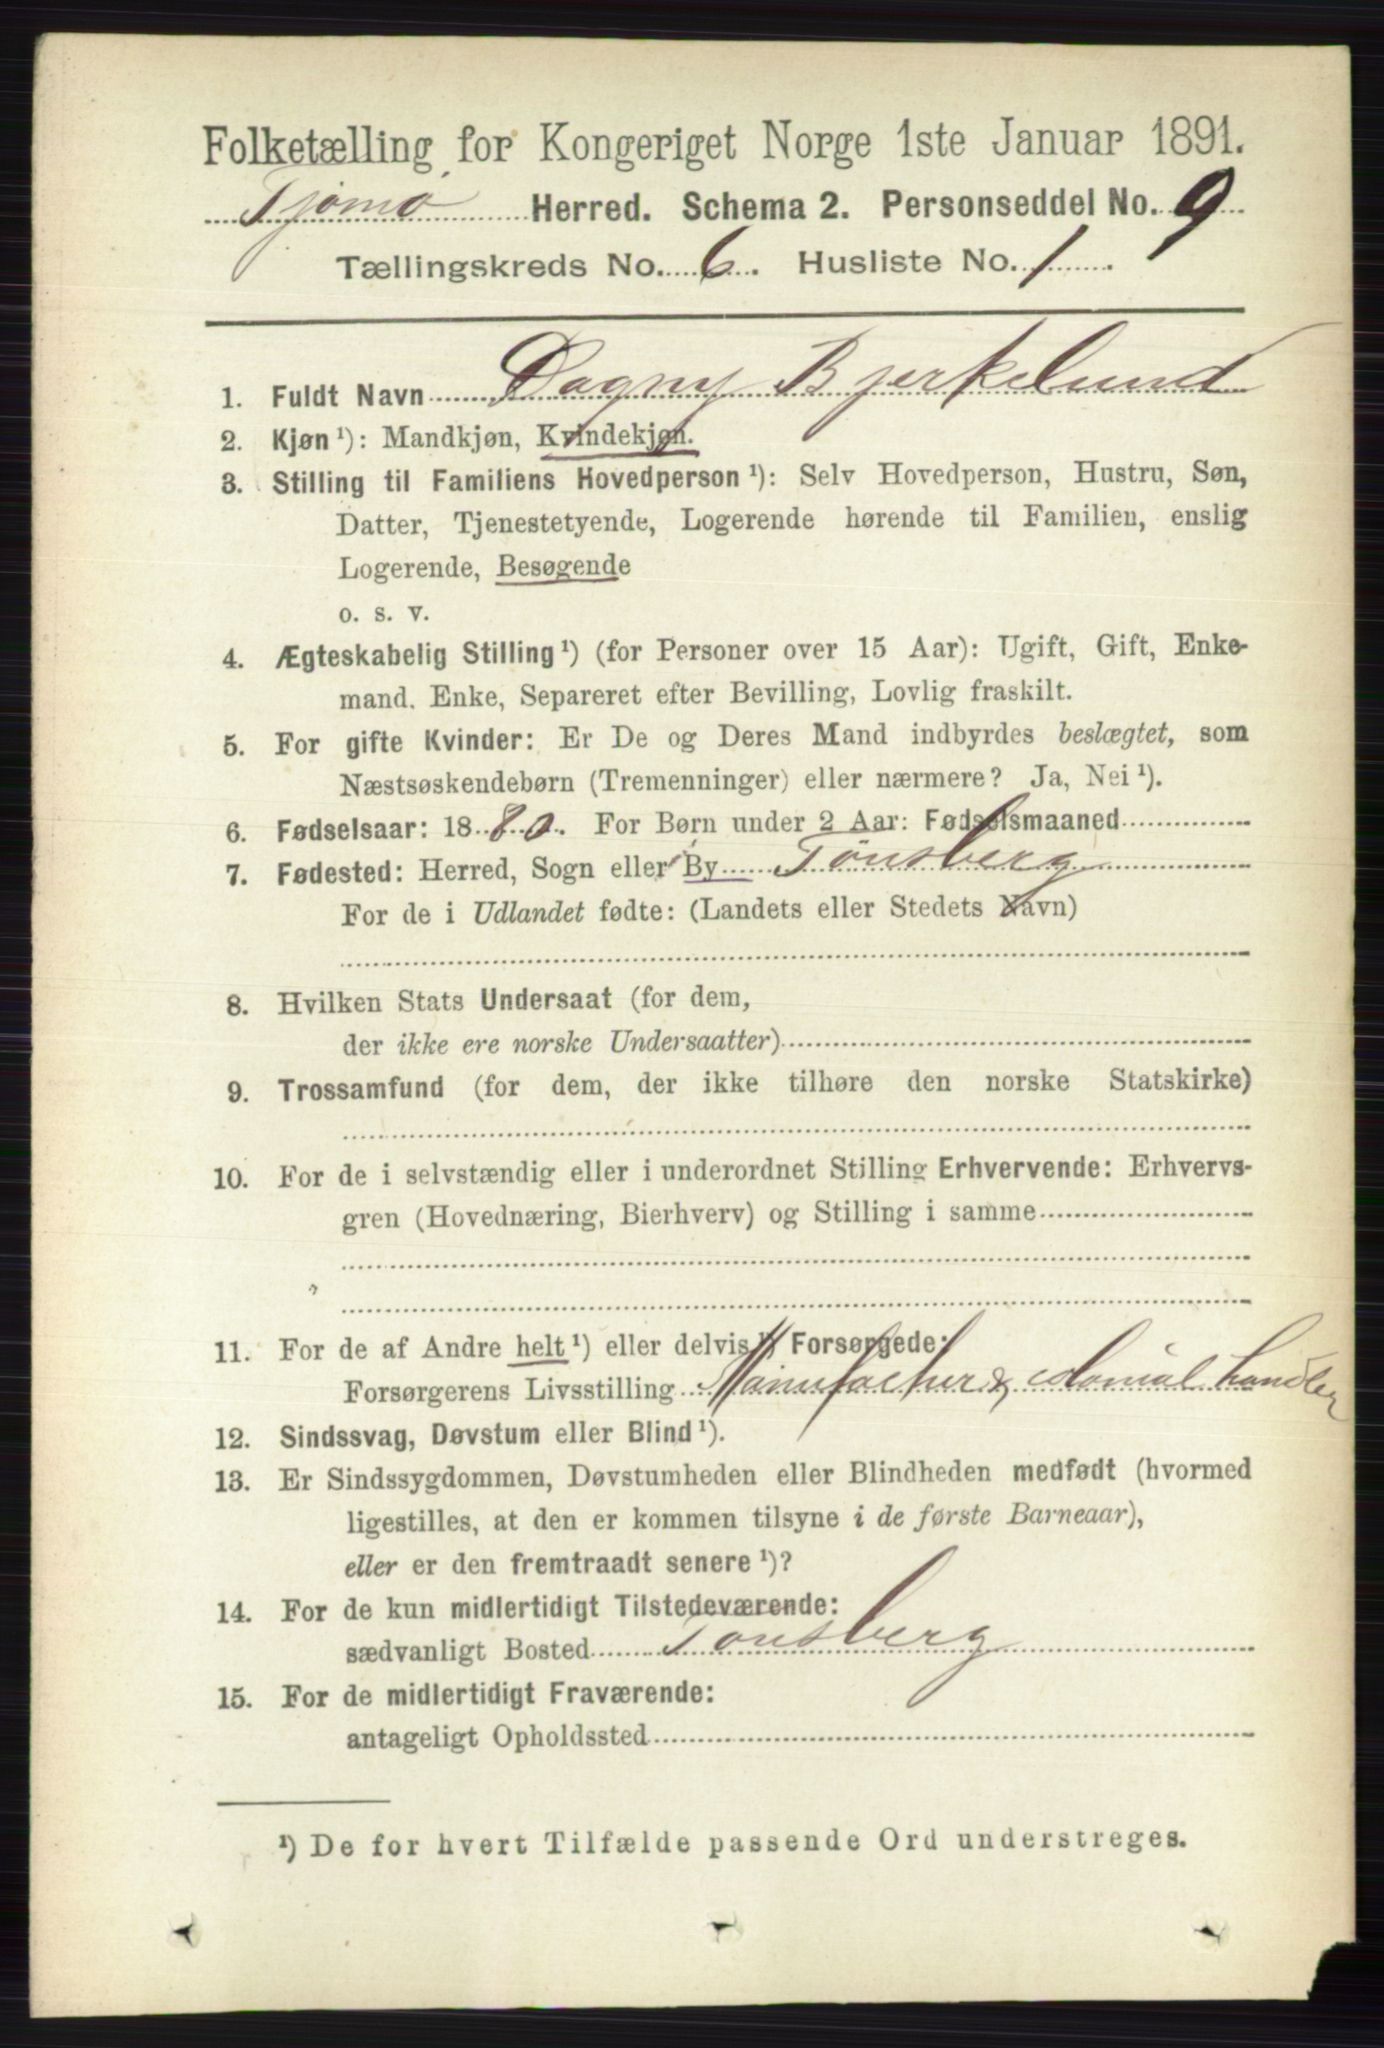 Folketælling for Kongeriget Norge 1ste Januar 1891.
Tjømø Herred. Schema 2. Personseddel No. 9
Tællingskreds No. 6. Husliste No. 1.
1. Fuldt Navn Dagny Bjerkelund
2. Kjøn ¹): Mandkjøn, Kvindekjøn.
3. Stilling til Familiens Hovedperson ¹): Selv Hovedperson, Hustru, Søn,
Datter, Tjenestetyende, Logerende hørende til Familien, enslig
Logerende, Besøgende
o. s. v.
4. Ægteskabelig Stilling ¹) (for Personer over 15 Aar): Ugift, Gift, Enke-
mand. Enke, Separeret efter Bevilling, Lovlig fraskilt.
5. For gifte Kvinder: Er De og Deres Mand indbyrdes beslægtet, som
Næstsøskendebørn (Tremenninger) eller nærmere? Ja, Nei ¹).
6. Fødselsaar: 1880. For Børn under 2 Aar: Fødselsmaaned
7. Fødested: Herred, Sogn eller By Tønsberg
For de i Udlandet fødte: (Landets eller Stedets Navn)
8. Hvilken Stats Undersaat (for dem,
der ikke ere norske Undersaatter)
9. Trossamfund (for dem, der ikke tilhøre den norske Statskirke)
10. For de i selvstændig eller i underordnet Stilling Erhvervende: Erhvervs-
gren (Hovednæring, Bierhverv) og Stilling i samme
11. For de af Andre helt ¹) eller delvis ¹) Forsørgede:
Forsørgerens Livsstilling Manufactur & colonial handler
12. Sindssvag, Døvstum eller Blind ¹).
13. Er Sindssygdommen, Døvstumheden eller Blindheden medfødt (hvormed
ligestilles, at den er kommen tilsyne i de første Barneaar),
eller er den fremtraadt senere ¹)?
14. For de kun midlertidigt Tilstedeværende:
sædvanligt Bosted Tønsberg
15. For de midlertidigt Fraværende:
antageligt Opholdssted
¹) De for hvert Tilfælde passende Ord understreges.